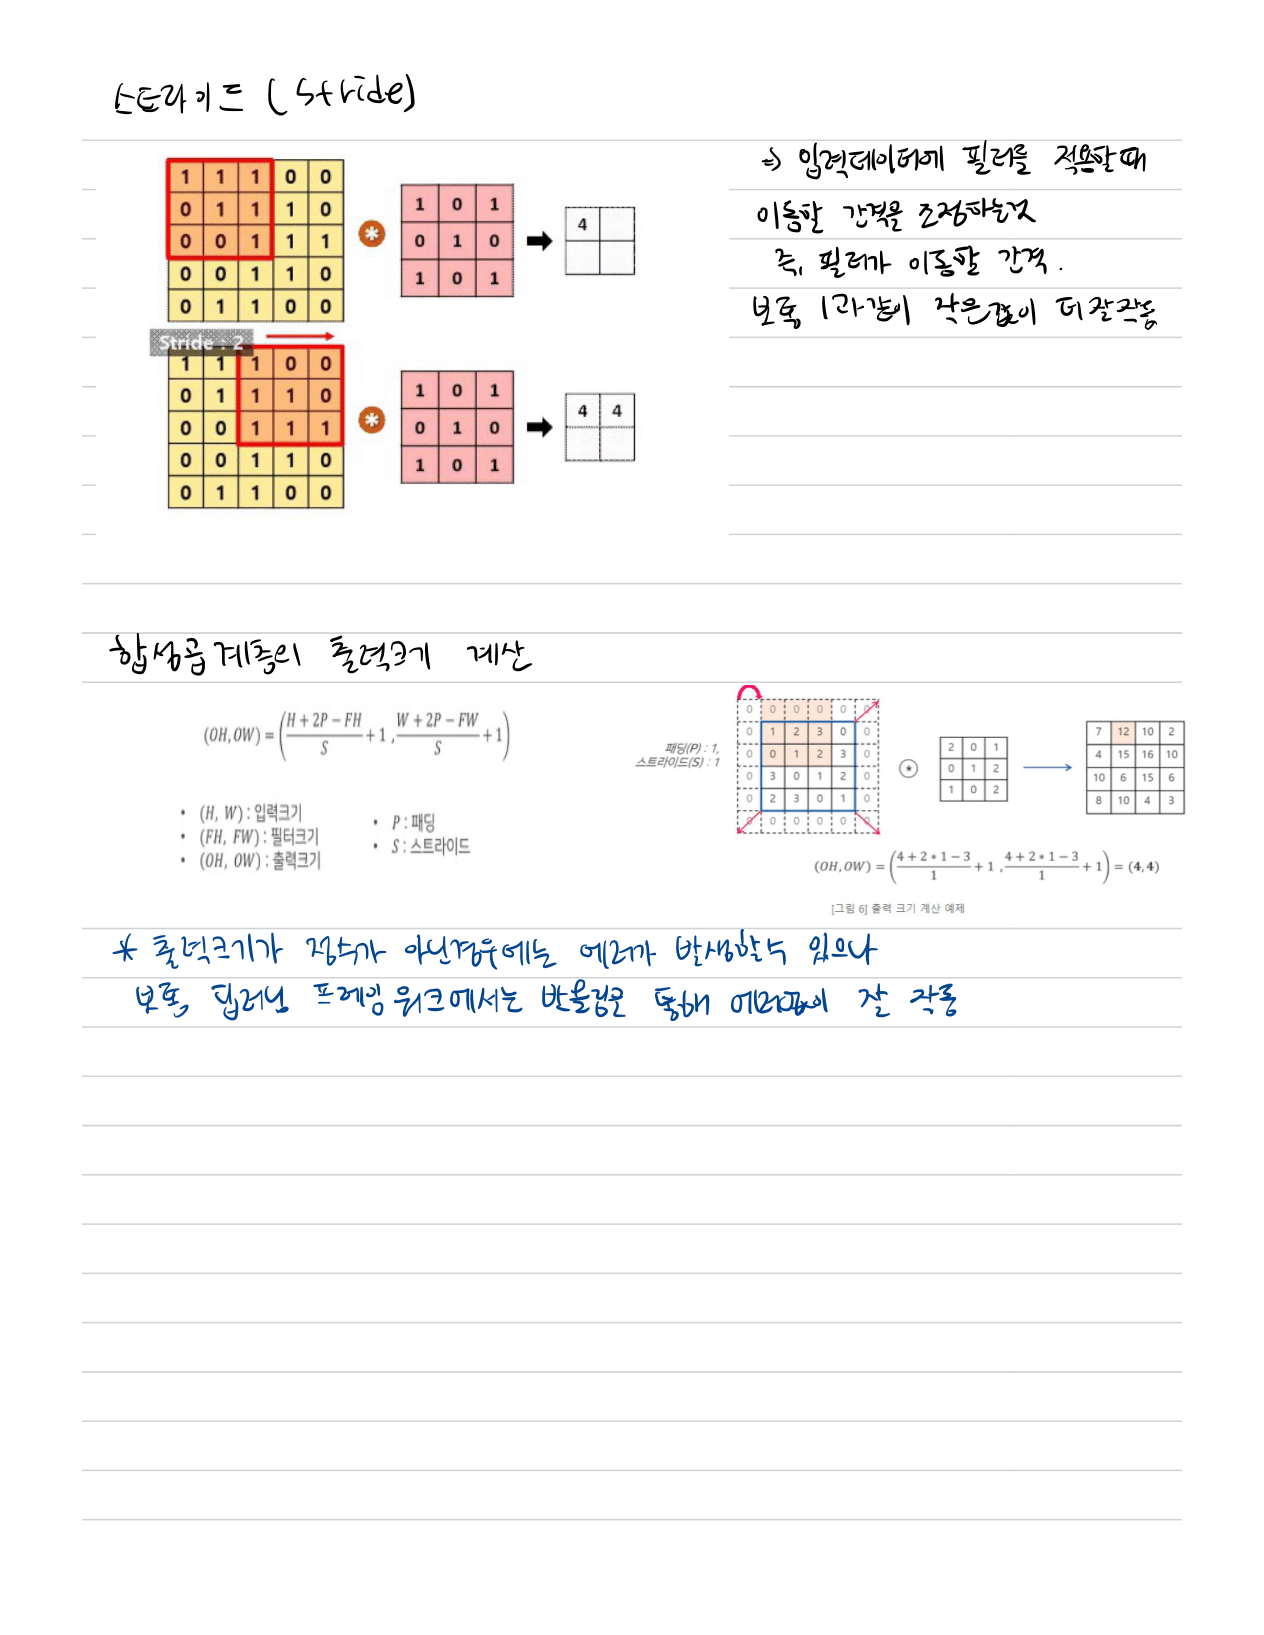 스트라이드 (Stride)
1 1 1 0 0
0 1 1 1 0
0 0 1 1 1
0 0 1 1 0
0 1 1 0 0
*
1 0 1
0 1 0
1 0 1
4
Stride : 2
1 1 1 0 0
0 1 1 1 0
0 0 1 1 1
0 0 1 1 0
0 1 1 0 0
*
1 0 1
0 1 0
1 0 1
4 4
⇒ 입력데이터에 필터를 적용할때
이동할 간격을 조정하는것
즉, 필터가 이동할 간격.
보통 1과같이 작은값이 더 잘작동
합성곱계층의 출력크기 계산
(OH, OW) = ((H + 2P − FH)/S + 1 , (W + 2P − FW)/S + 1)
• (H, W) : 입력크기
• (FH, FW) : 필터크기
• (OH, OW) : 출력크기
• P : 패딩
• S : 스트라이드
패딩(P) : 1,
스트라이드(S) : 1
0 0 0 0 0 0
0 1 2 3 0 0
0 0 1 2 3 0
0 3 0 1 2 0
0 2 3 0 1 0
0 0 0 0 0 0
2 0 1
0 1 2
1 0 2
7 12 10 2
4 15 16 10
10 6 15 6
8 10 4 3
(OH, OW) = ((4 + 2 * 1 − 3)/1 + 1 , (4 + 2 * 1 − 3)/1 + 1) = (4, 4)
[그림 6] 출력 크기 계산 예제
* 출력크기가 정수가 아닌경우에는 에러가 발생할수 있으나
보통 딥러닝 프레임워크에서는 반올림을 통해 에러없이 잘 작동